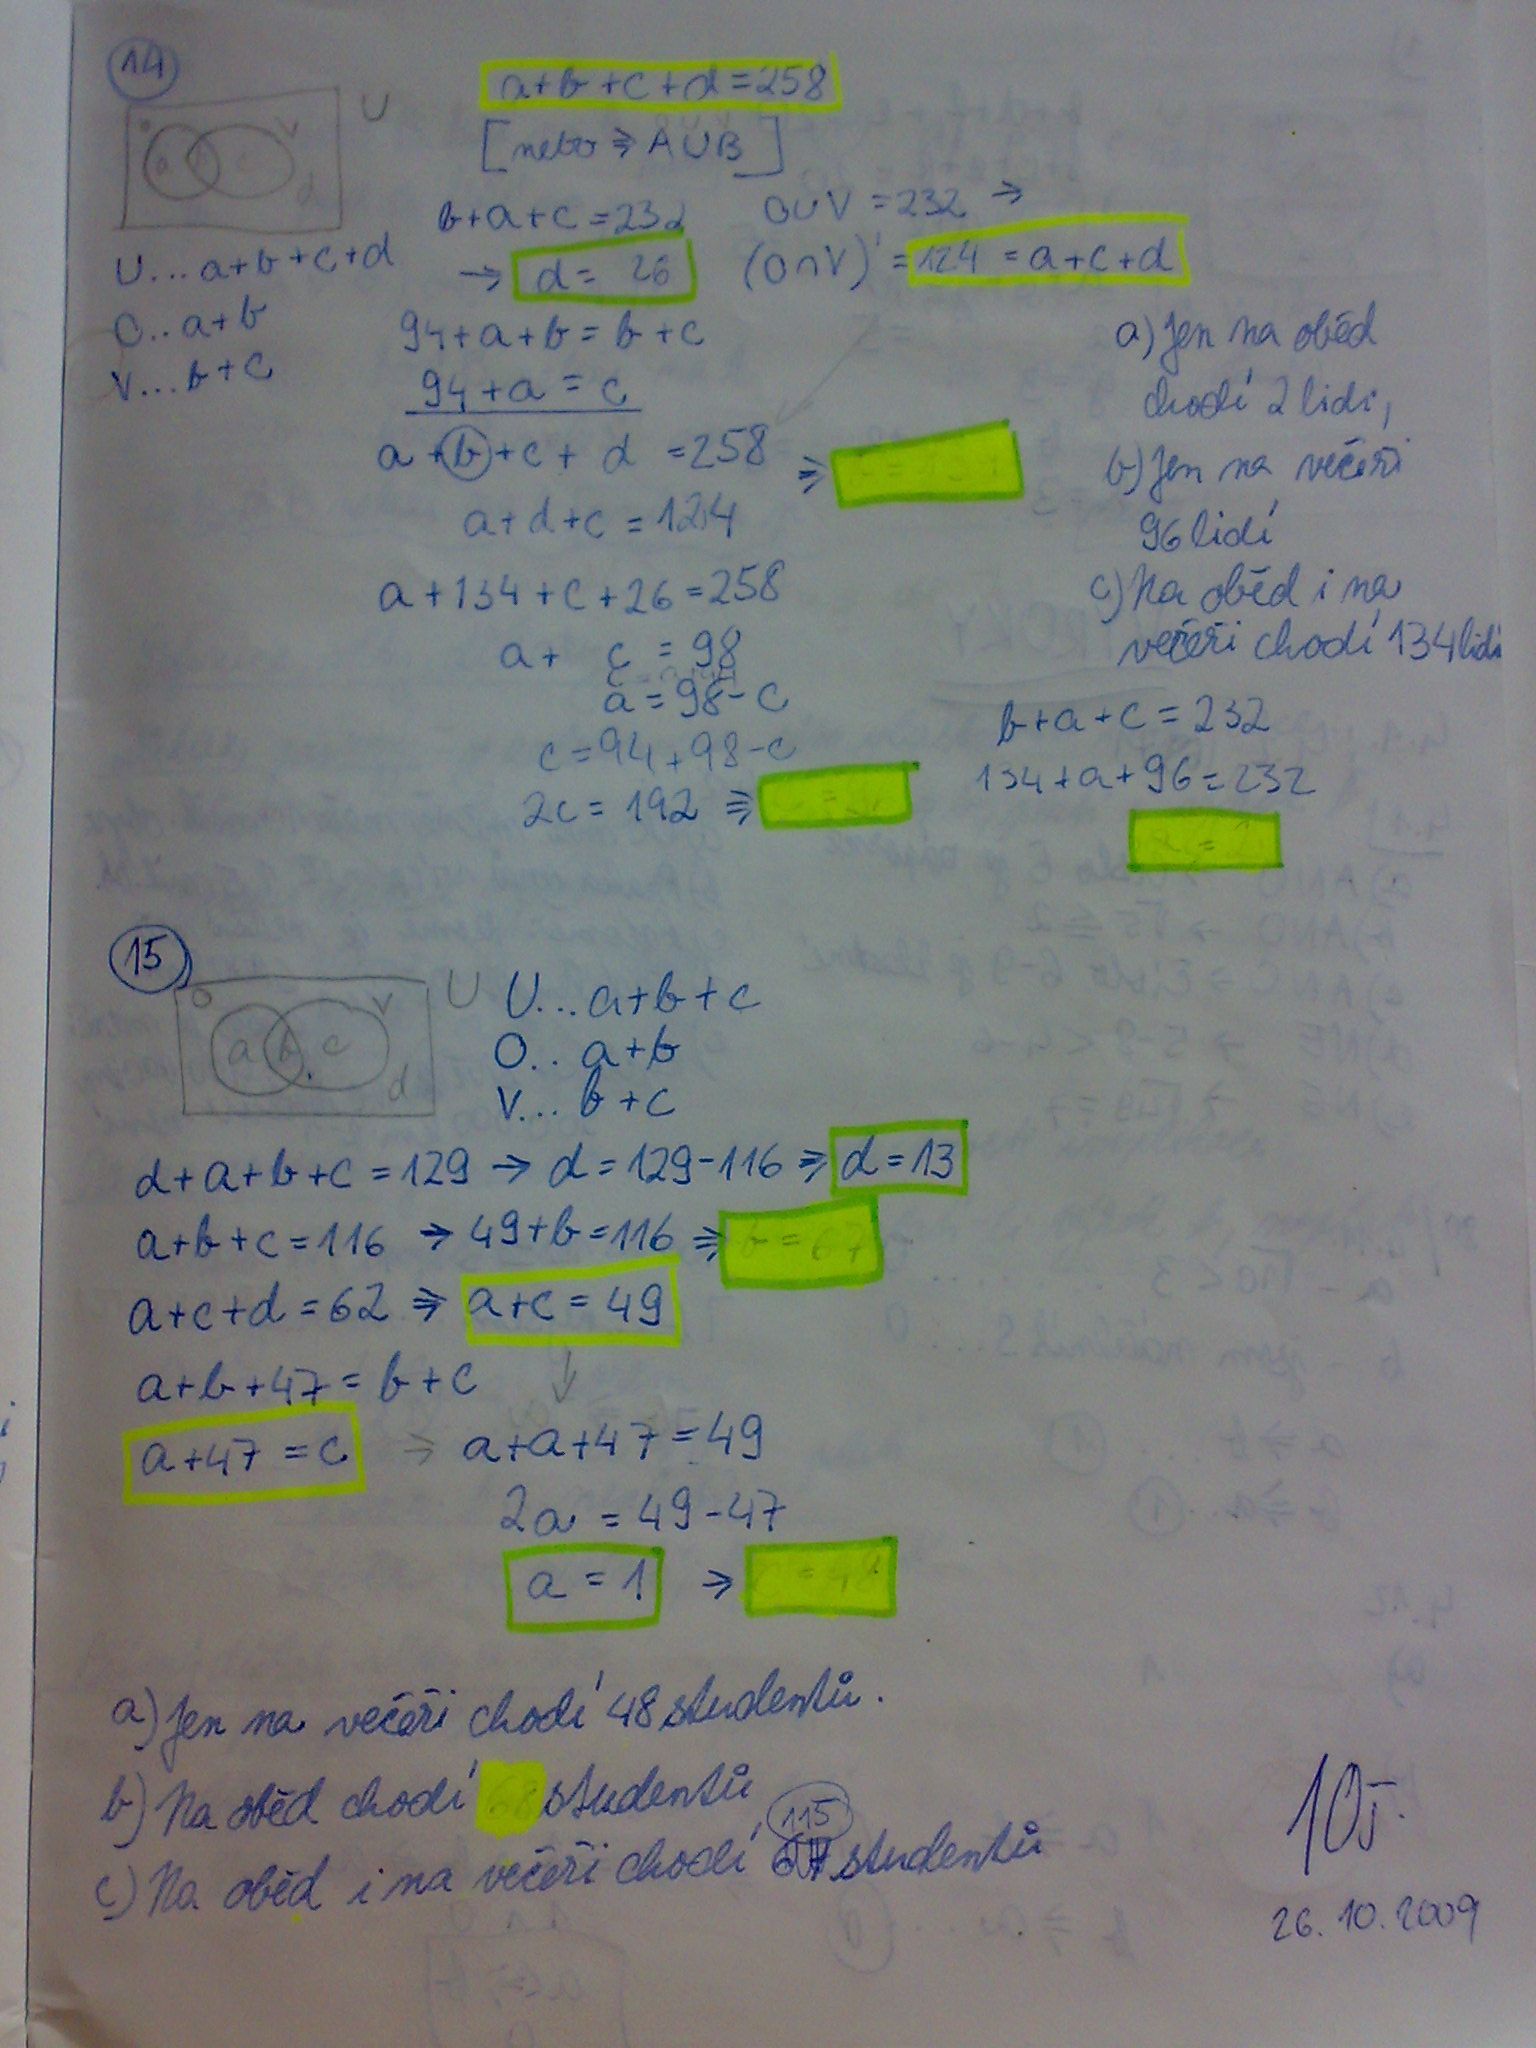 14
a+b+c+d=258
U
[nebo ⇒ A∪B]
O V
a b c
d
b+a+c=232
O∪V=232 →
→ d= 26
(O∩V)' = 124 = a+c+d
U...a+b+c+d
O..a+b
V...b+c
94+a+b=b+c
94+a=c
a+b+c+d=258 ⇒ b=134
a+d+c=124
a+134+c+26=258
a+ c=98
a=98-c
c=94+98-c
2c=192 ⇒ c=96
a) Jen na oběd
chodí 2 lidi,
b) Jen na večeři
96 lidí
c) Na oběd i na
večeři chodí 134 lidí
b+a+c=232
134+a+96=232
a=2
15
O V
U
a b c
d
U...a+b+c
O..a+b
V...b+c
d+a+b+c=129 → d=129-116 ⇒ d=13
a+b+c=116 → 49+b=116 ⇒ b=67
a+c+d=62 ⇒ a+c=49
a+b+47=b+c
a+47=c → a+a+47=49
2a=49-47
a=1 ⇒ c=48
a) Jen na večeři chodí 48 studentů.
b) Na oběd chodí 68 studentů
115
c) Na oběd i na večeři chodí studentů
26.10.2009